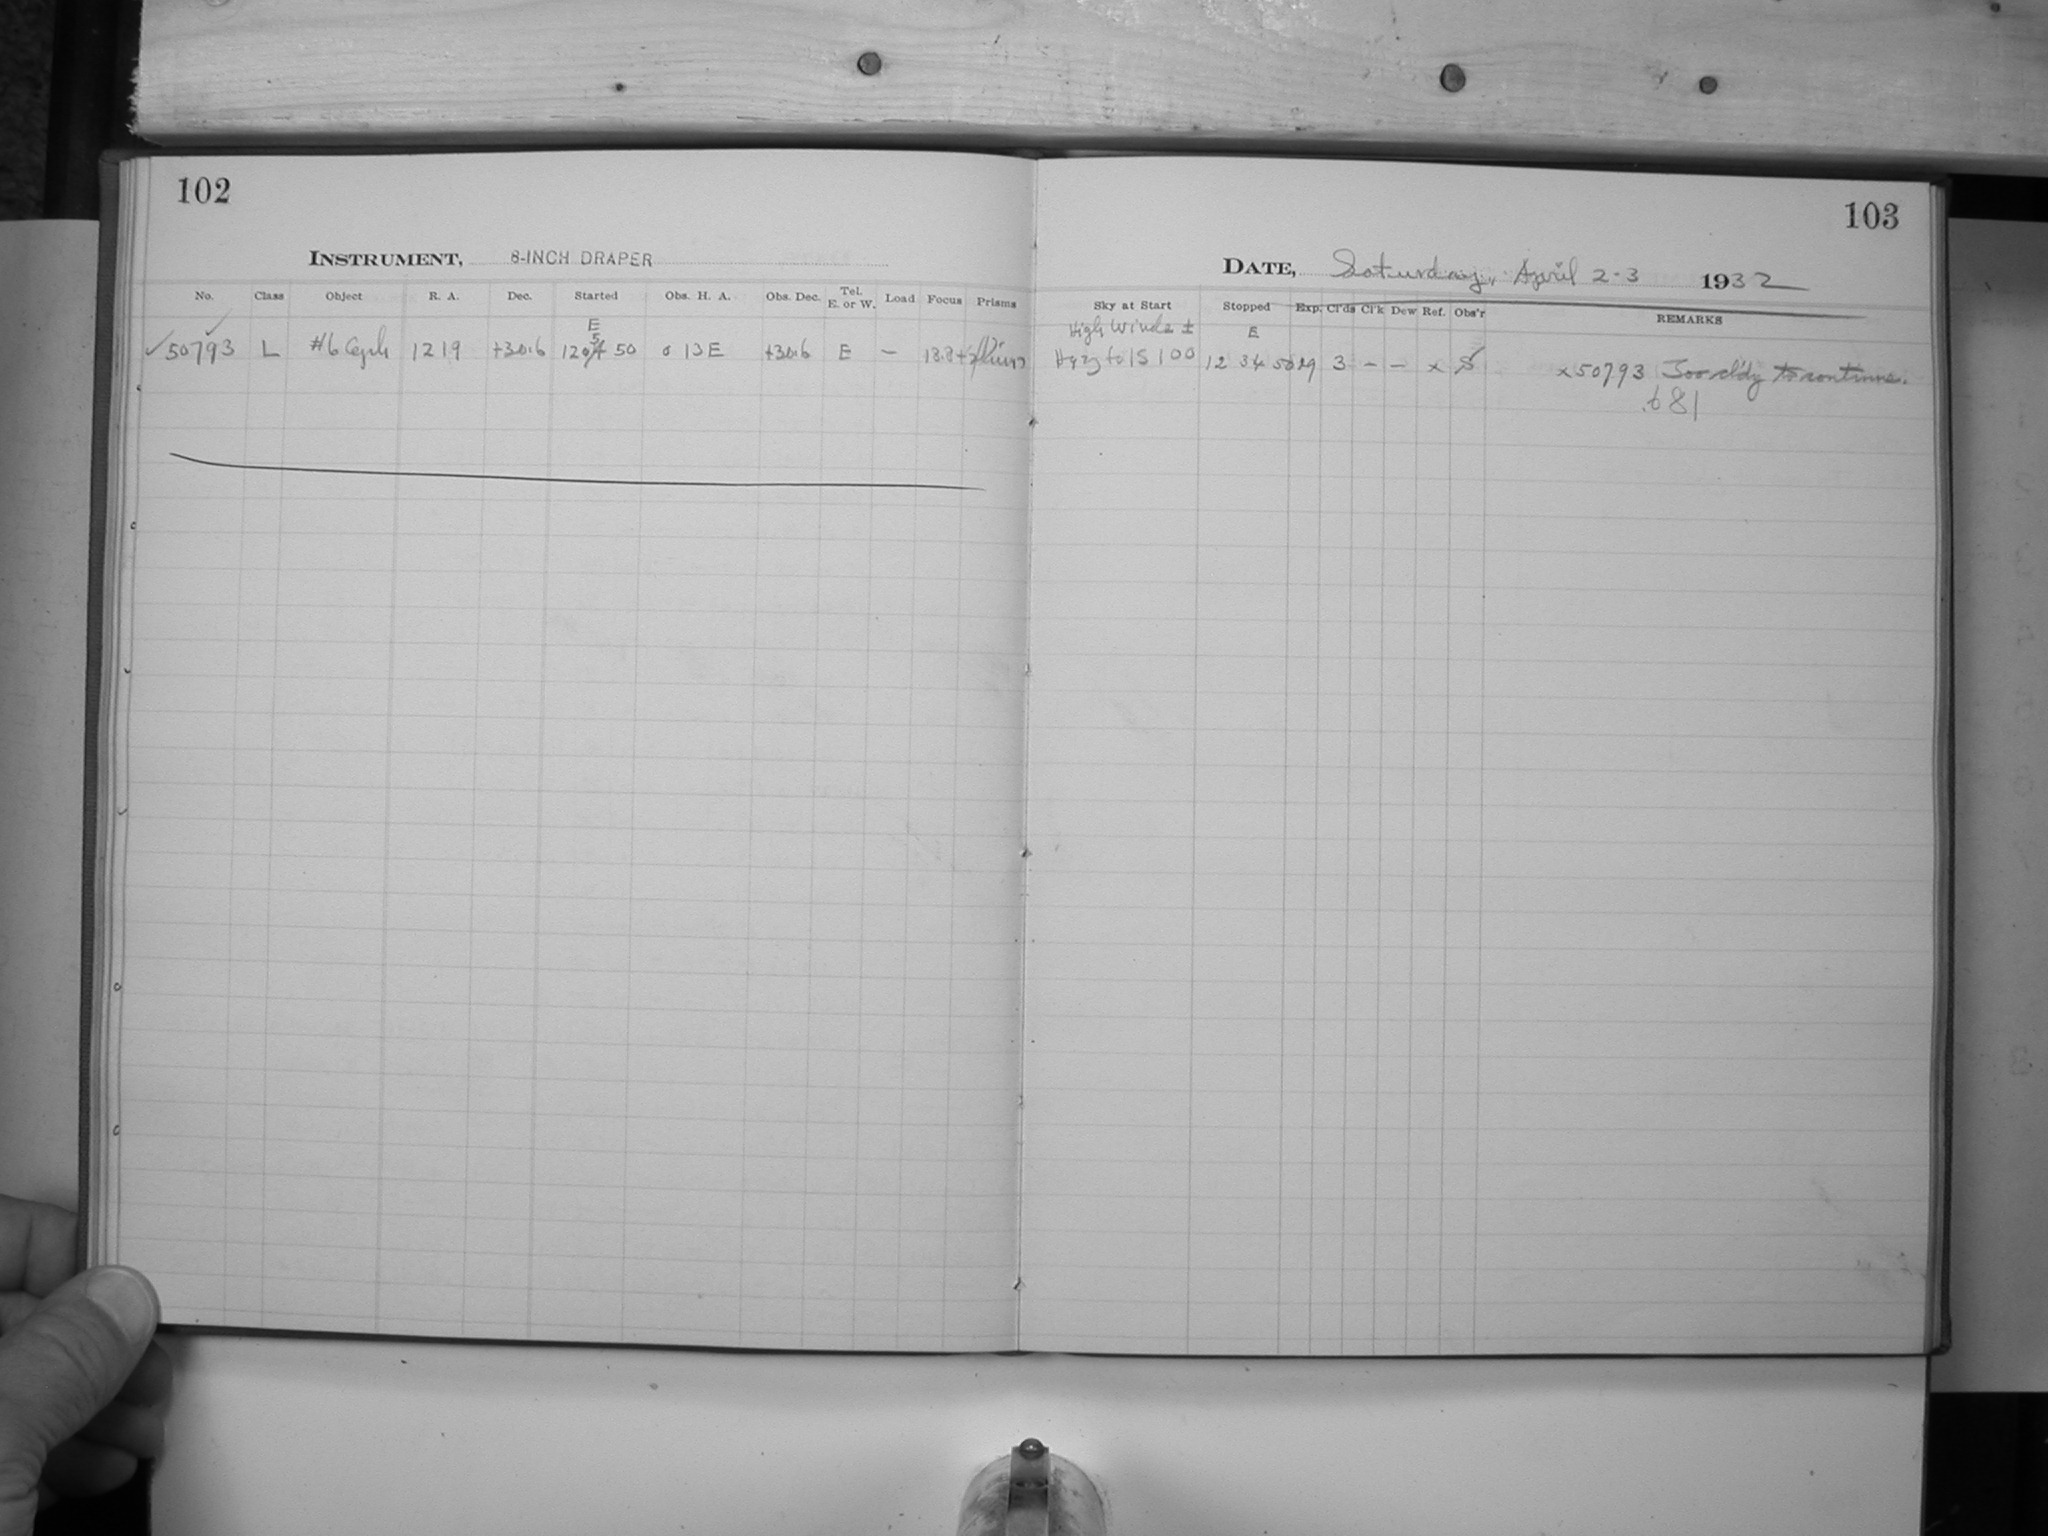 102
INSTRUMENT, 8-INCH DRAPER
No. Class Object R. A. Dec. Started Obs. H. A. Obs. Dec. Tel. E. or W. Load Focus Prisms
E
5
50793 L #6 1219 +30.6 50 0 13 E +30.6 E —
103
DATE, Saturday, April 2-3 1932
Sky at Start Stopped Exp. Cl'ds Cl'k Dew Ref. Obs'r REMARKS
High Winds ± E
to 15 100 12 34 50 29 3 – – x S x50793 Too cldy to continue.
.681